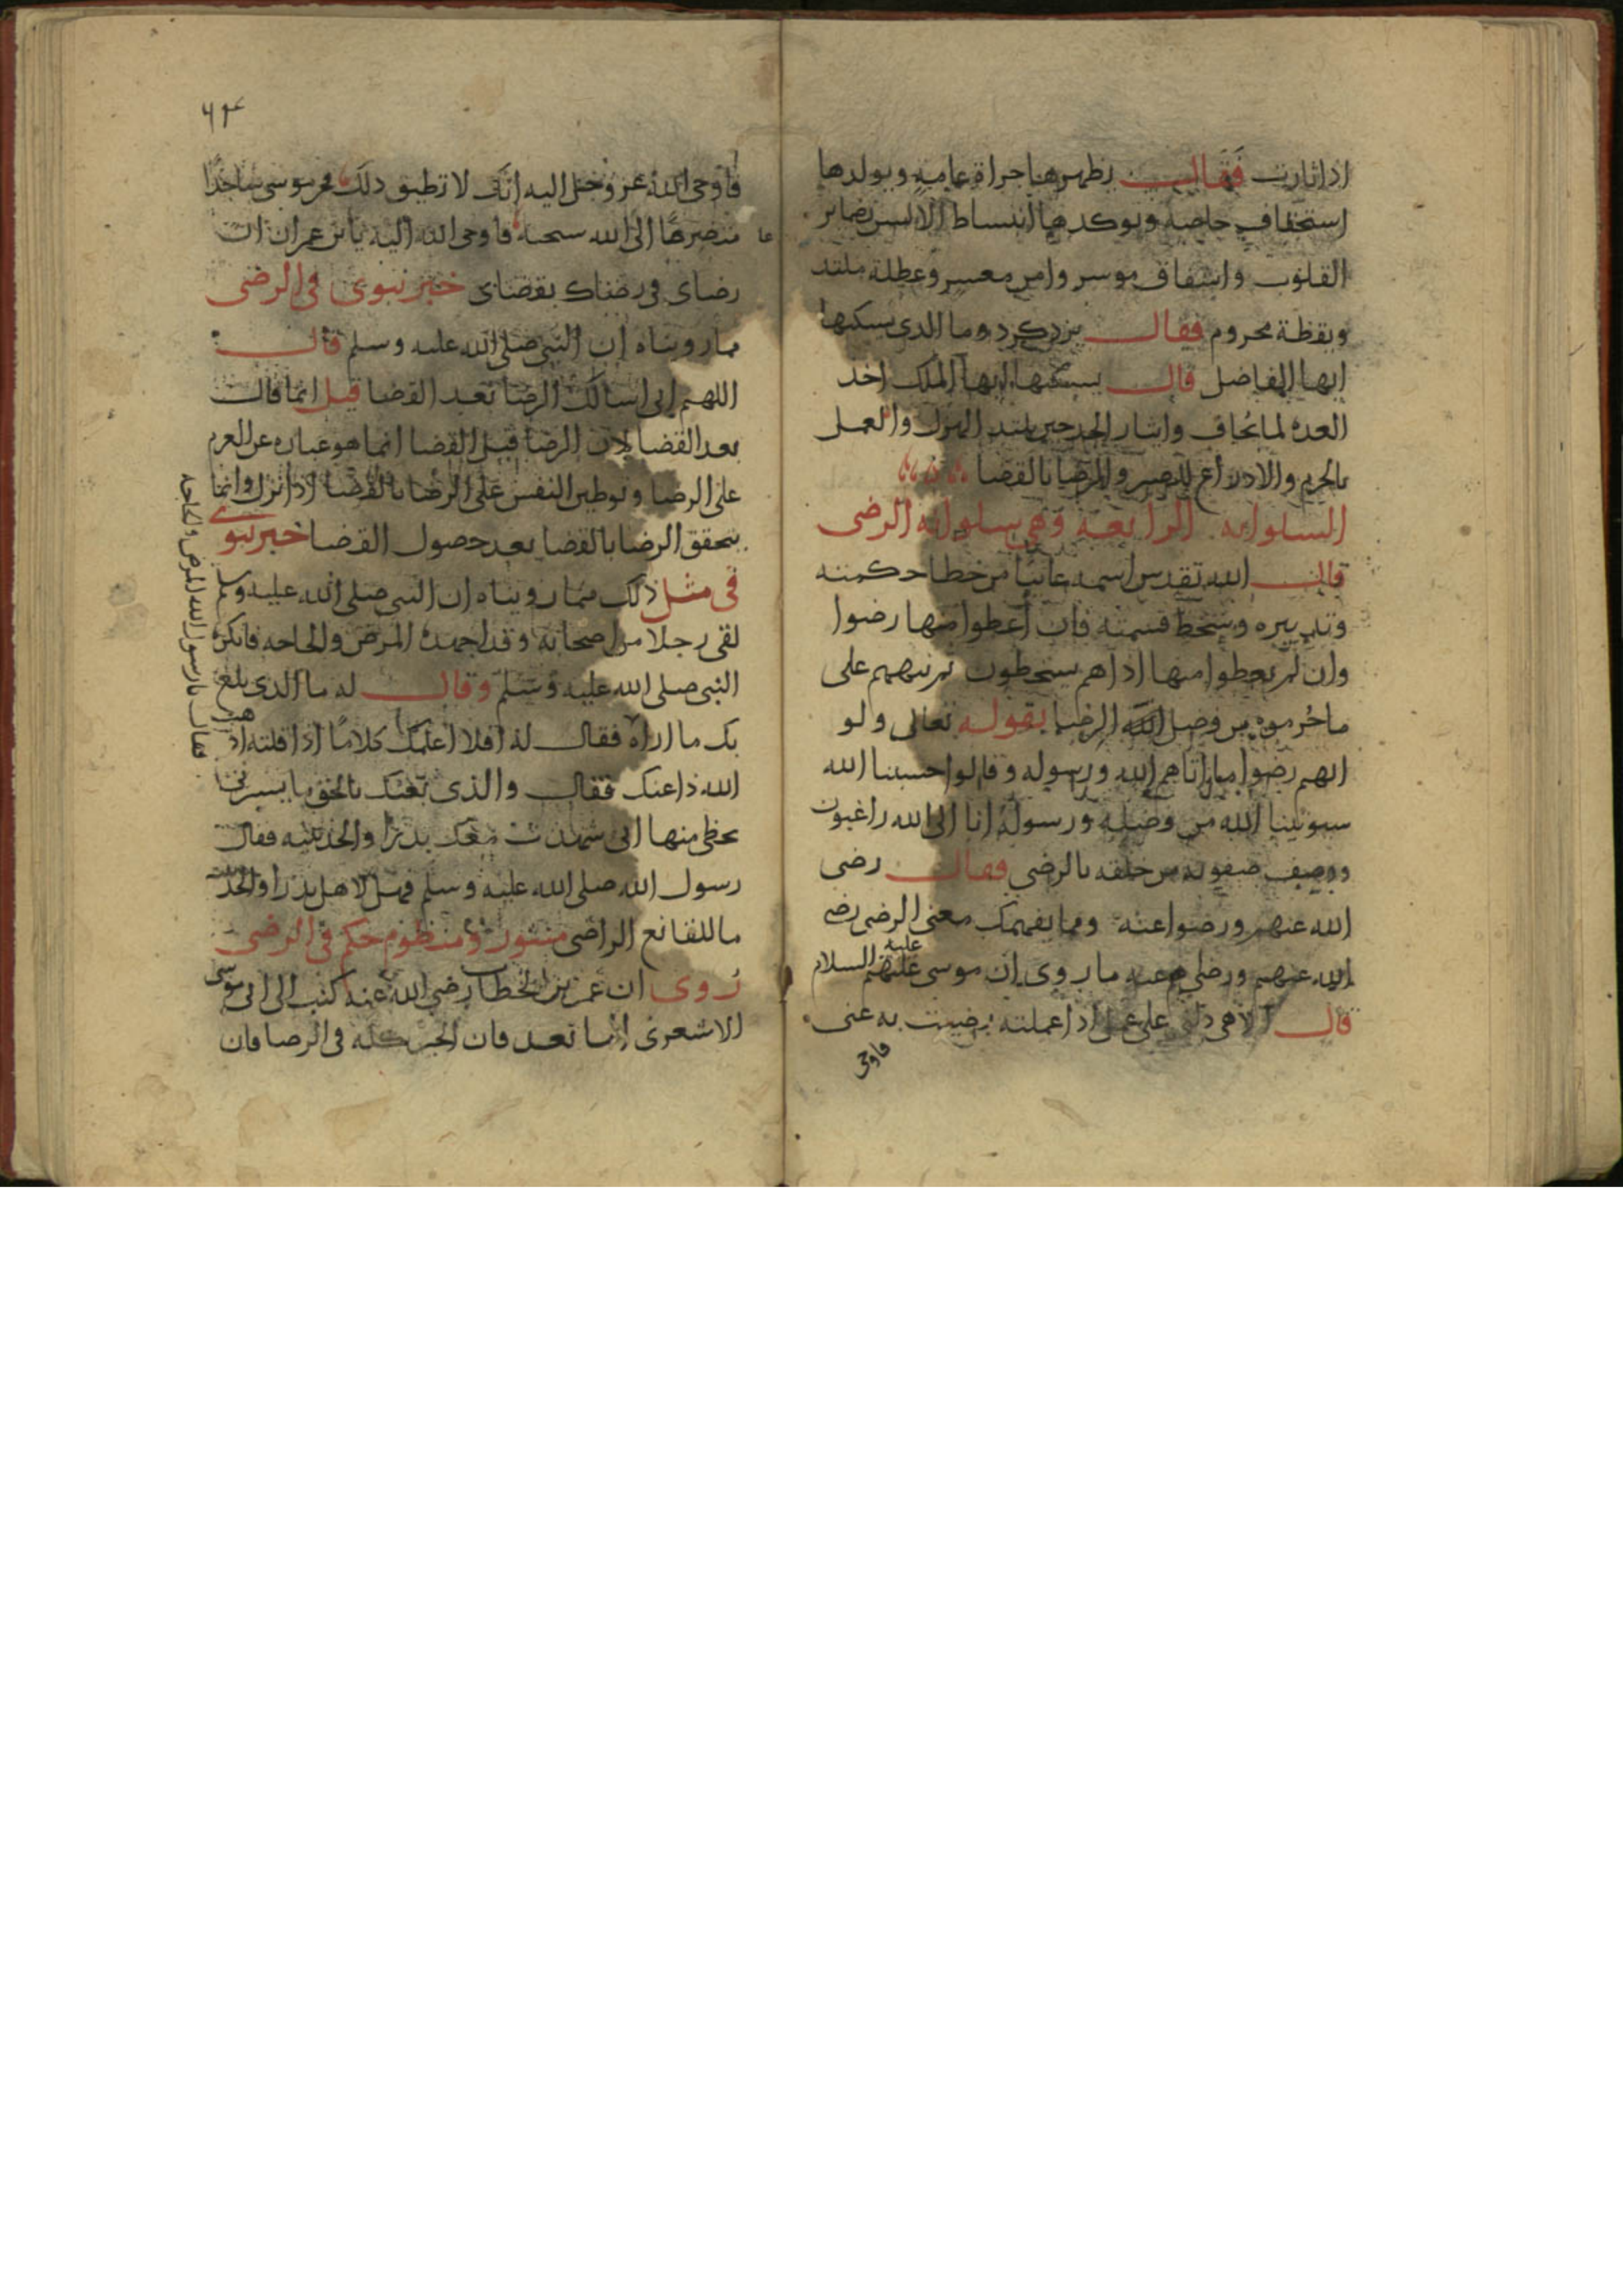 اذا ثارت فقال يظهرها جراة عامية ويولدها
استخفاف خاصة ويوكدها انبساط الالسن بضماير
القلوب واشفاق موسر وامن معسر وعطلة ملتذ
ويقظة محروم فقال يزدكرد وما الذي يسكنها
ايها الفاضل قال يسكنها ايها الملك اخذ
العدة لما يخاف وايثار الجد حين يلتذ الهزل والعمل
بالحزم والادراع للصبر والرضا بالقضا
السلوانه الرابعة وهي سلوانة الرضى
قال الله تقدس اسمه عاتبا من خطا حكمته
وتدبيره وسخط قسمته فان أعطوا منها رضوا
وان لم يعطوا منها اذا هم يسخطون ثم نبههم على
ما حُرموه من فضل الله الرضا بقوله تعالى ولو
انهم رضوا ما اتاهم الله ورسوله وقالوا حسبنا الله
سيوتينا الله من فضله ورسوله انا الى الله راغبون
ووصف صفوته من خلقه بالرضى فقال رضى
الله عنهم ورضوا عنه ومما يفهمك معنى الرضى رضى
الله عنهم ورضاهم عنه ما روى ان موسى عليه السلام
قال الاهى دلنى على عمل اذا عملته رضيت به عنى
فاوحى
٦٣
فاوحى الله عز وجل اليه انك لا تطيق ذلك فخر موسى ساجدا
متضرعًا الى الله سبحنه فاوحى الله اليه يا بن عمران ان
رضاى في رضاك بقضاى خبر نبوى في الرضى
مما رويناه ان النبي صلى الله عليه وسلم قال
اللهم انى اسالك الرضا بعد القضا قيل انما قال
بعد القضا لان الرضا قبل القضا انما هو عبارة عن العزم
على الرضا وتوطين النفس على الرضا بالقضا اذا نزل وانما
يتحقق الرضا بالقضا بعد حصول القضا خبر نبوي
في مثل ذلك مما رويناه ان النبي صلى الله عليه وسلم
لقى رجلا من اصحابه وقد اجهده المرض والحاجه فانكره
النبي صلى الله عليه وسلم وقال له ما الذي بلغ
بك ما اراه فقال له افلا اعلمك كلامًا اذا قلته اذهب
الله ذا عنك فقال والذي بعثك بالحق ما يسرني
بحظى منها انى شهدت معك بدرًا والحديبيه فقال
رسول الله صلى الله عليه وسلم فهل لاهل بدر والحديبية
ما للقانع الراضى منثور ومنظوم حكم في الرضى
رُوى ان عمر بن الخطاب رضى الله عنه كتب الى ابى موسى
الاشعرى اما بعد فان الخير كله في الرضا فان
فقال يا رسول الله المرض والحاجه